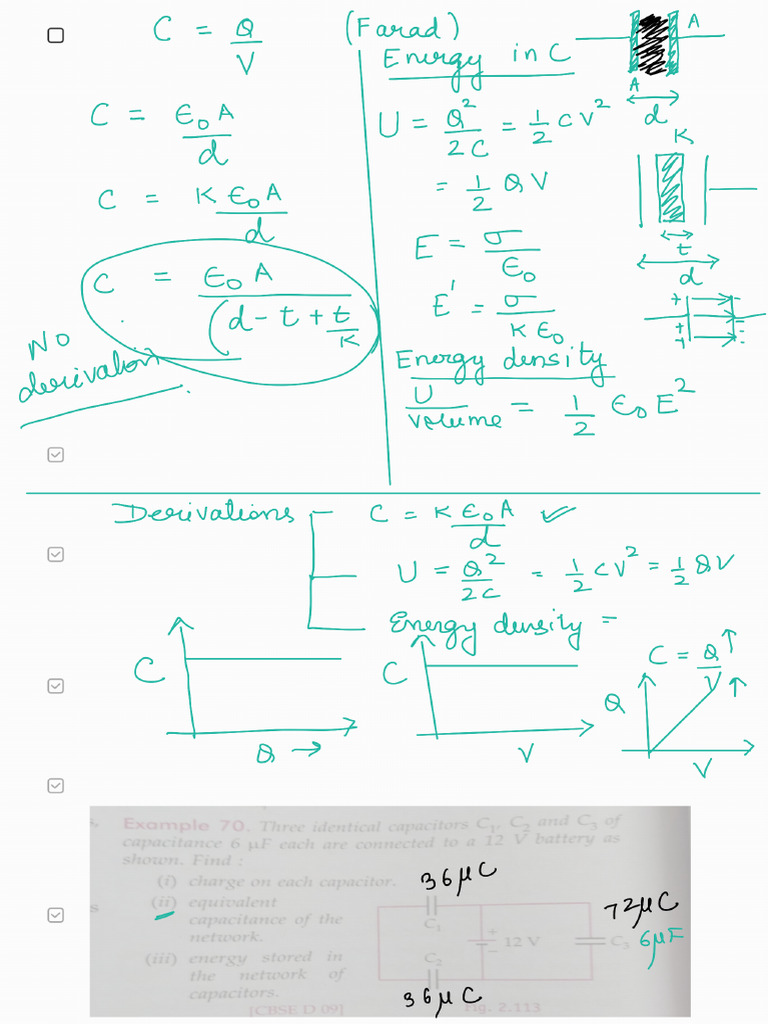 C = Q/V
C = ε₀A/d
C = Kε₀A/d
C = ε₀A/(d - t + t/K
No derivation
(Farad)
Energy in C
U = Q²/2C = 1/2 CV²
= 1/2 QV
E = σ/ε₀
E' = σ/Kε₀
Energy density
U/volume = 1/2 ε₀E²
A
A
d
K
t
d
+ -
+ -
+ -
Derivations
C = Kε₀A/d ✓
U = Q²/2C = 1/2 CV² = 1/2 QV
Energy density =
C
Q →
C
V
C = Q↑/V↑
Q
V
Example 70. Three identical capacitors C₁, C₂ and C₃ of
capacitance 6 μF each are connected to a 12 V battery as
shown. Find :
(i) charge on each capacitor.
(ii) equivalent
capacitance of the
network.
(iii) energy stored in
the network of
capacitors.
[CBSE D 09]
36μC
C₁
+
12 V
-
72μC
C₃ 6μF
C₂
36μC
Fig. 2.113